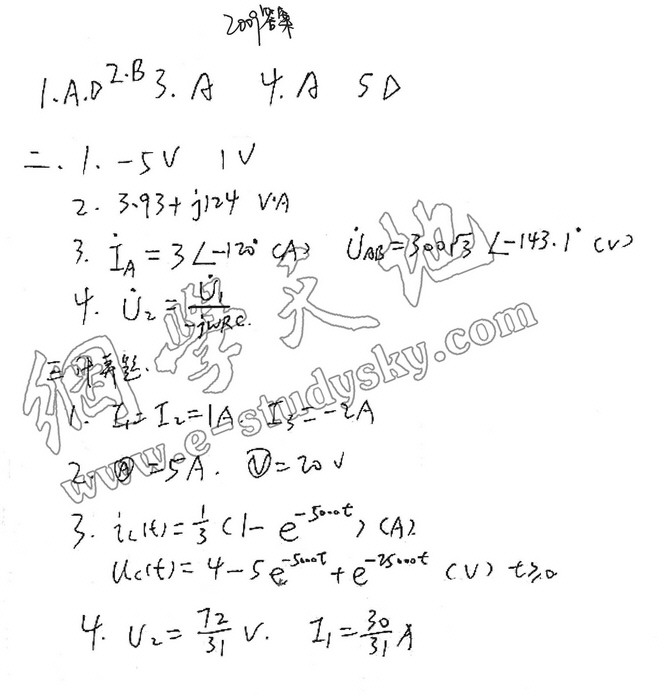 2009答案
1. A.D 2.B 3. A 4. A 5 D
二. 1. -5V 1V
2. 3.93+j124 V·A
3. İ_A = 3∠-120° (A) U̇_AB = 300√3 ∠-143.1° (V)
4. U̇₂ = U̇₁/-jωRC.
三 计算题.
1. I₁=I₂=1A. I₃=-2A
2. Ⓐ=5A. Ⓥ=20V
3. i_L(t)=1/3(1-e^{-5000t}) (A).
u_C(t)=4-5e^{-5000t}+e^{-25000t} (V) t≥0
4. U₂=72/31 V. I₁=30/31 A
網學天地
www.e-studysky.com